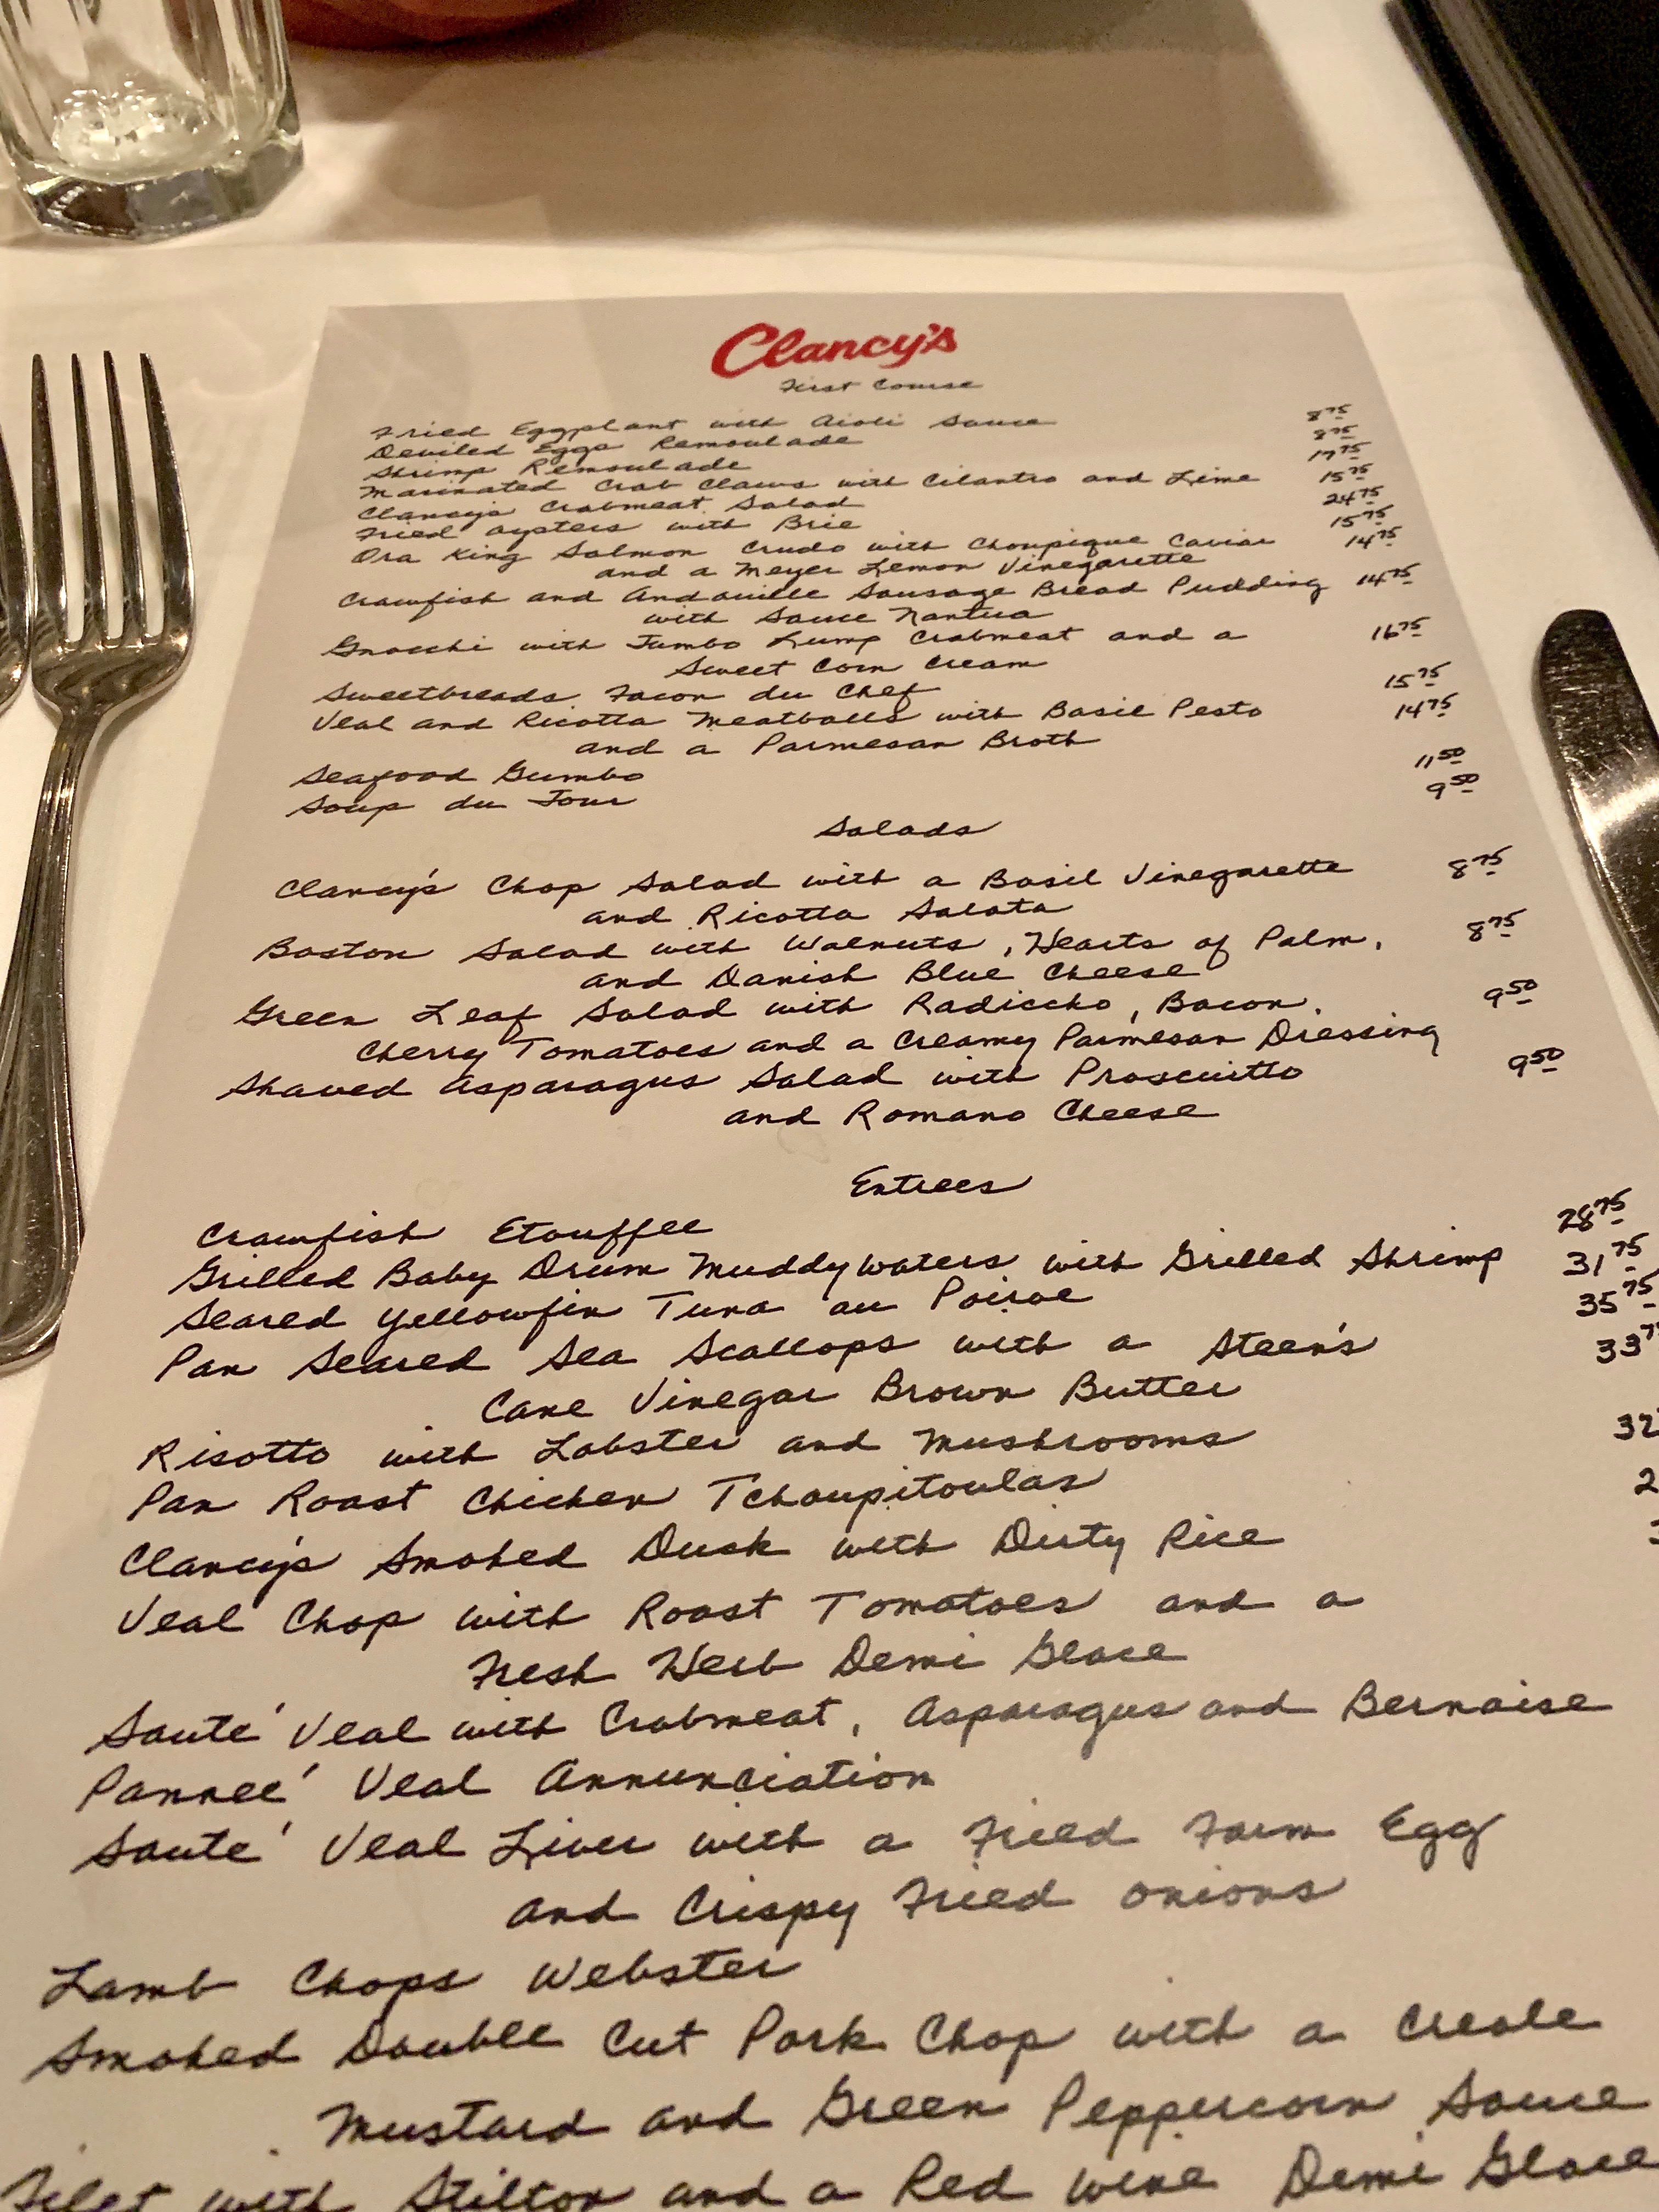 Clancy's
First Course
Fried Eggplant with Aioli Sauce 8 75
Deviled Eggs Remoulade 8 75
Shrimp Remoulade 17 75
Marinated Crab Claws with Cilantro and Lime 15 75
Clancy's Crabmeat Salad 24 75
Fried Oysters with Brie 15 75
Ora King Salmon Crudo with Choupique Caviar 14 75
and a Meyer Lemon Vinegarette
Crawfish and Andouille Sausage Bread Pudding 14 75
with Sauce Nantua
Gnocchi with Jumbo Lump Crabmeat and a 16 75
Sweet Corn Cream
Sweetbreads Facon du Chef 15 75
Veal and Ricotta Meatballs with Basil Pesto 14 75
and a Parmesan Broth
Seafood Gumbo 11 50
Soup du Jour 9 50
Salads
Clancy's Chop Salad with a Basil Vinegarette 8 75
and Ricotta Salata
Boston Salad with Walnuts, Hearts of Palm, 8 75
and Danish Blue Cheese
Green Leaf Salad with Radiccho, Bacon, 9 50
Cherry Tomatoes and a Creamy Parmesan Dressing
Shaved Asparagus Salad with Proscuitto 9 50
and Romano Cheese
Entrees
Crawfish Etouffee 28 75
Grilled Baby Drum Muddywaters with Grilled Shrimp 31 75
Seared Yellowfin Tuna au Poivre 35 75
Pan Seared Sea Scallops with a Steen's 33 7
Cane Vinegar Brown Butter
Risotto with Lobster and Mushrooms 32
Pan Roast Chicken Tchoupitoulas 2
Clancy's Smoked Duck with Dirty Rice
Veal Chop with Roast Tomatoes and a
Fresh Herb Demi Glace
Sauté Veal with Crabmeat, Asparagus and Bernaise
Panneé Veal Annunciation
Sauté Veal Liver with a Fried Farm Egg
and Crispy Fried Onions
Lamb Chops Webster
Smoked Double Cut Pork Chop with a Creole
Mustard and Green Peppercorn Sauce
Filet with Stilton and a Red Wine Demi Glace